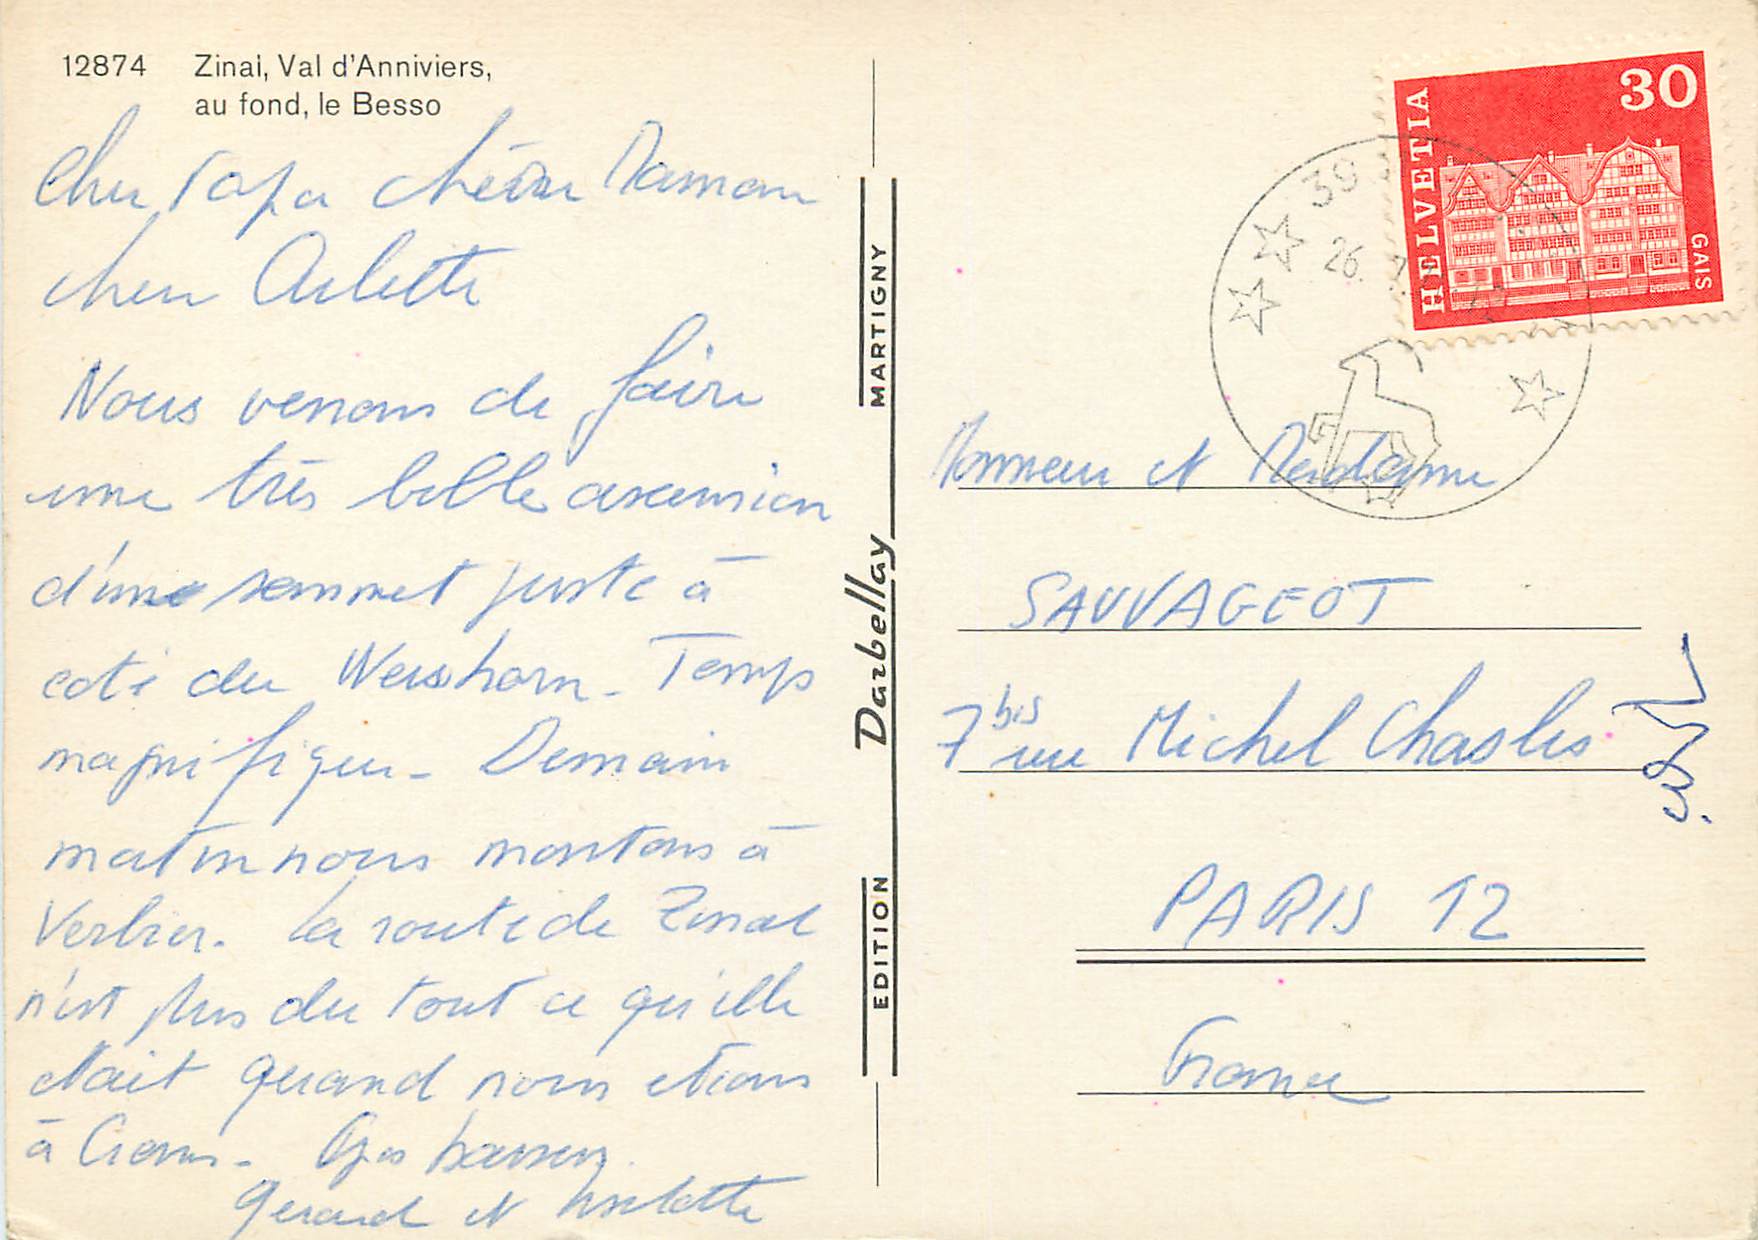 12874 Zinal, Val d'Anniviers,
au fond, le Besso
Cher Papa chère Maman
chère Arlette
Nous venons de faire
une très belle ascension
d'une sommet juste à
coté du Weisshorn - Temps
magnifique - Demain
matin nous montons à
Verbier. La route de Zinal
n'est plus du tout ce qu'elle
était quand nous étions
à Crans - Gros baisers
Gerard et Liselotte
EDITION Darbellay MARTIGNY
HELVETIA
30
GAIS
26. 7.
Monsieur et Madame
SAUVAGEOT
7 bis rue Michel Chasles
PARIS 12
France